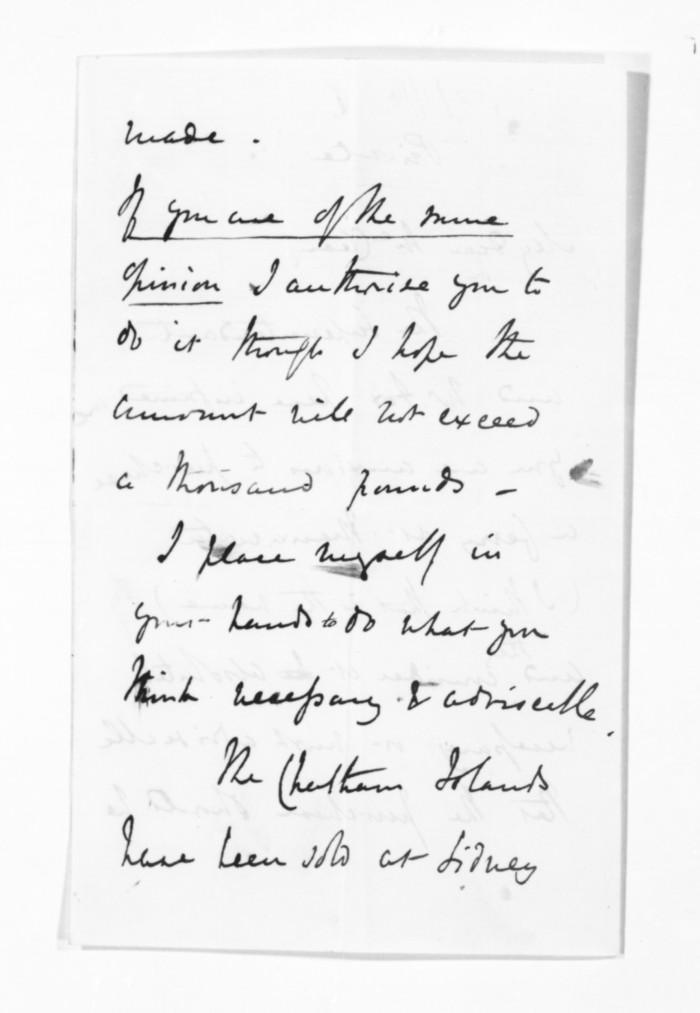 made.
If you are of the same
opinion I authorise you to
do it though I hope the
amount will not exceed
a thousand pounds –
I place myself in
your hands to do what you
think necessary & adviseable.
The Chatham Islands
have been sold at Sidney